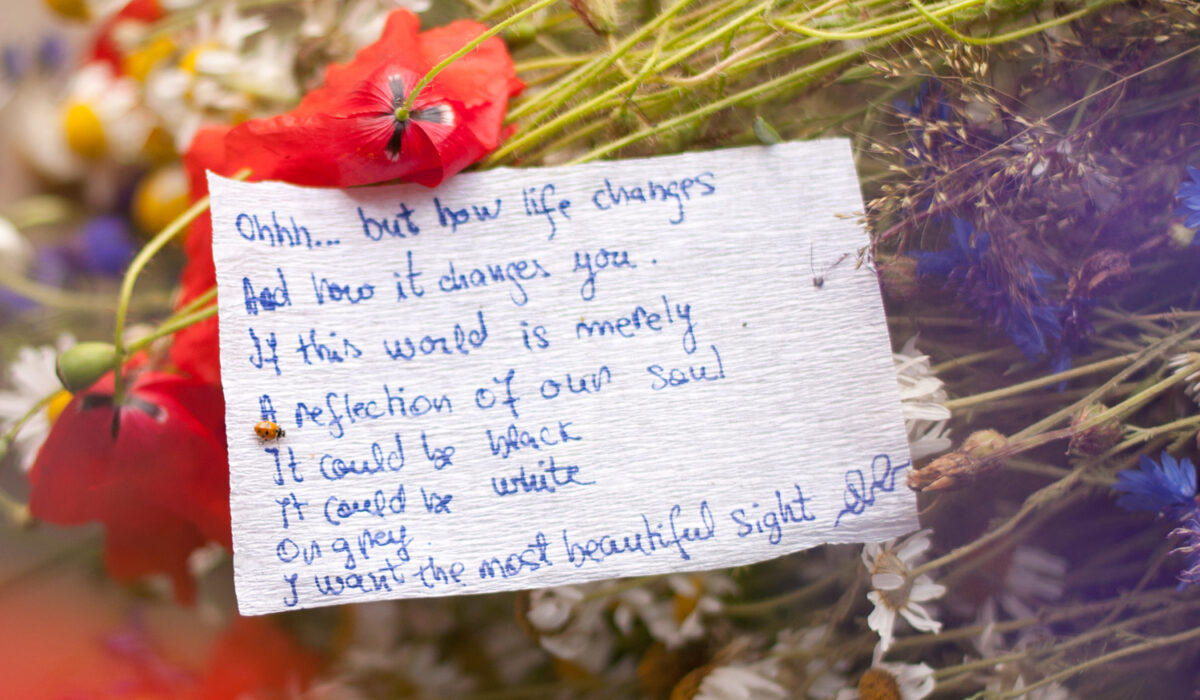 Ohhh... but how life changes
And how it changes you.
If this world is merely
A reflection of our soul
It could be black
It could be white
Or grey.
I want the most beautiful sight